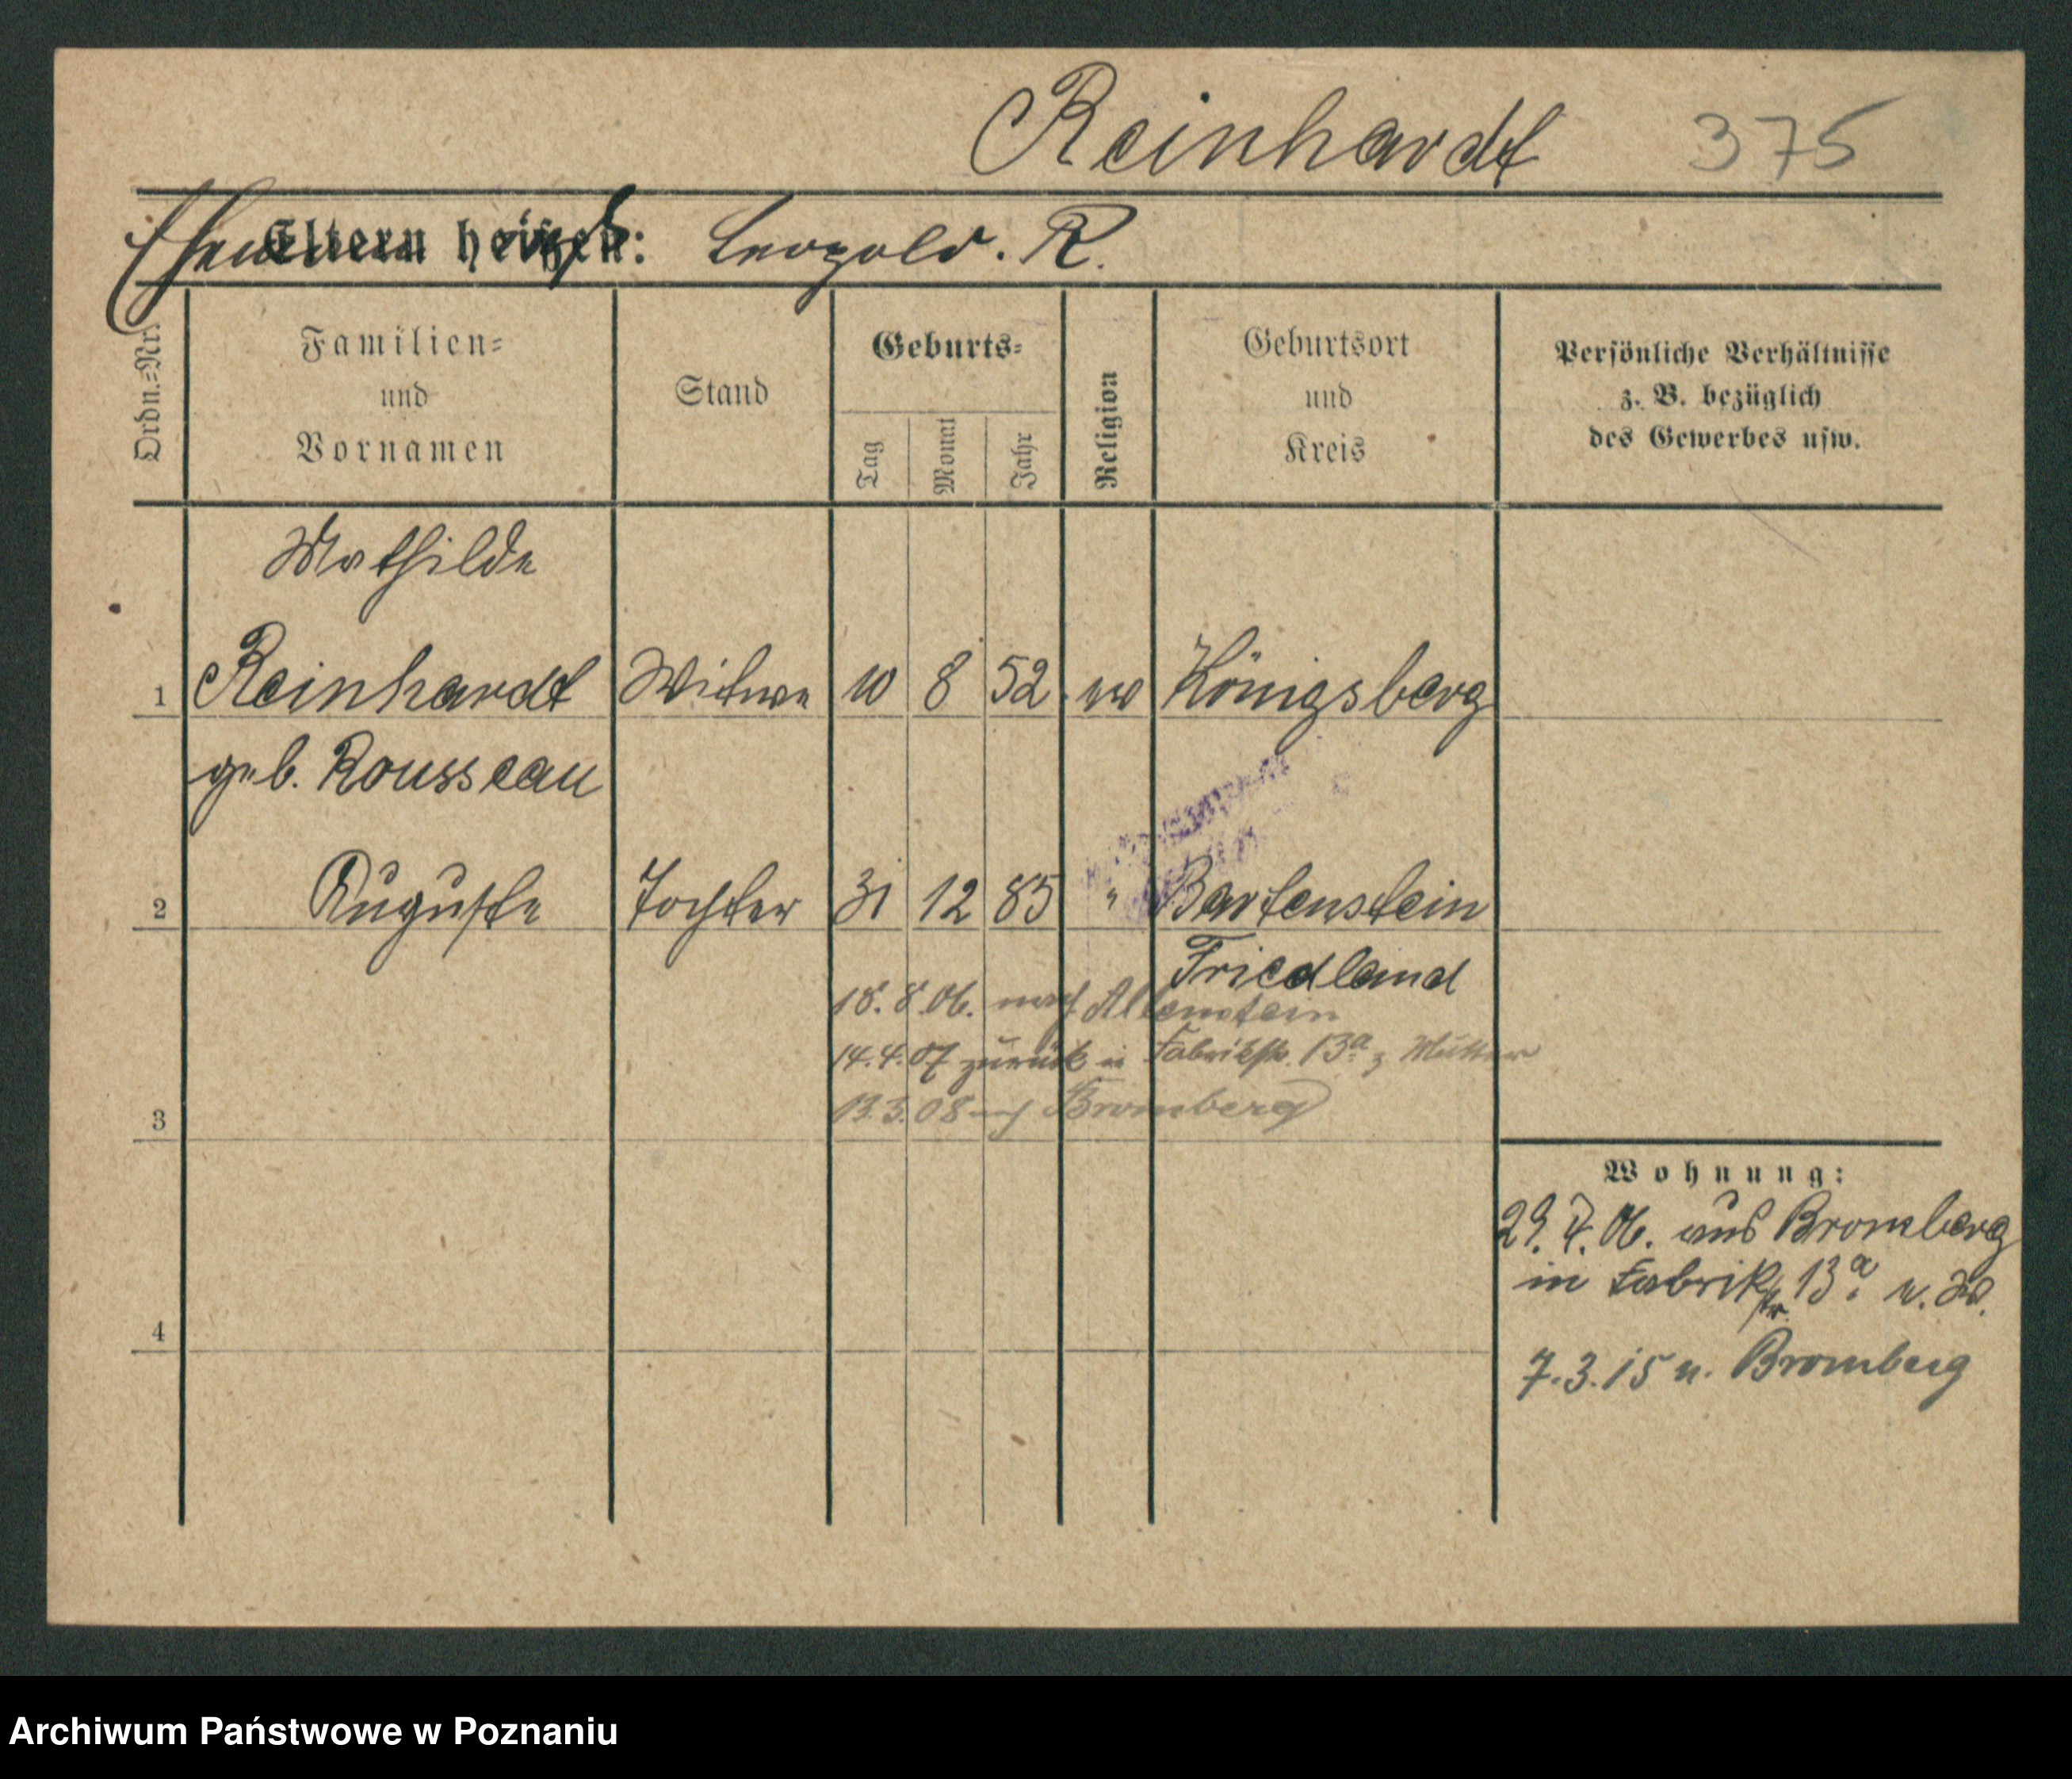 Reinhardt 375
Eltern heißen: Leopold. R.
Ordn.=Nr.
Familien=
und
Vornamen
Stand
Geburts=
Tag
Monat
Jahr
Religion
Geburtsort
und
Kreis
Persönliche Verhältnisse
z. B. bezüglich
des Gewerbes usw.
Mathilde
1 Reinhardt Witwe 10 8 52 ev Königsberg
geb. Rousseau
2 Auguste Tochter 31 12 85 " Bartenstein
Friedland
18. 8. 06. nach Allenstein
14. 4. 07 zurück in Fabrikstr. 13a z Mutter
3 13. 3. 08 nach Bromberg
Wohnung:
29. 7. 06. aus Bromberg
in Fabrikstr. 13a
4
7. 3. 15 n. Bromberg
Archiwum Państwowe w Poznaniu